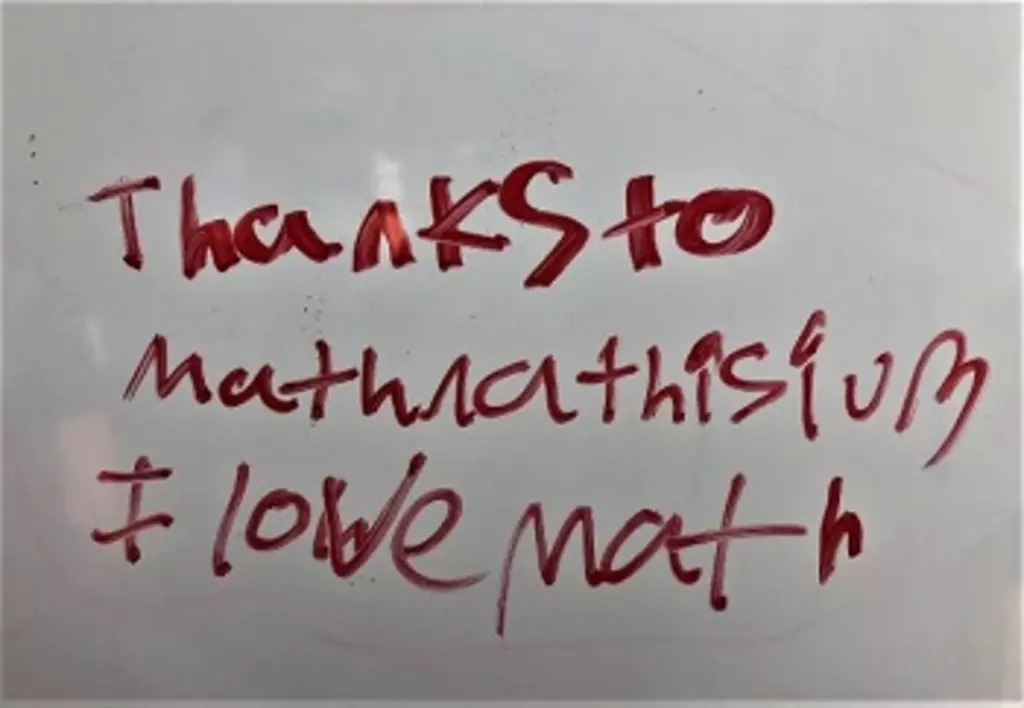 Thanks to
Mathnathisium
I love Math